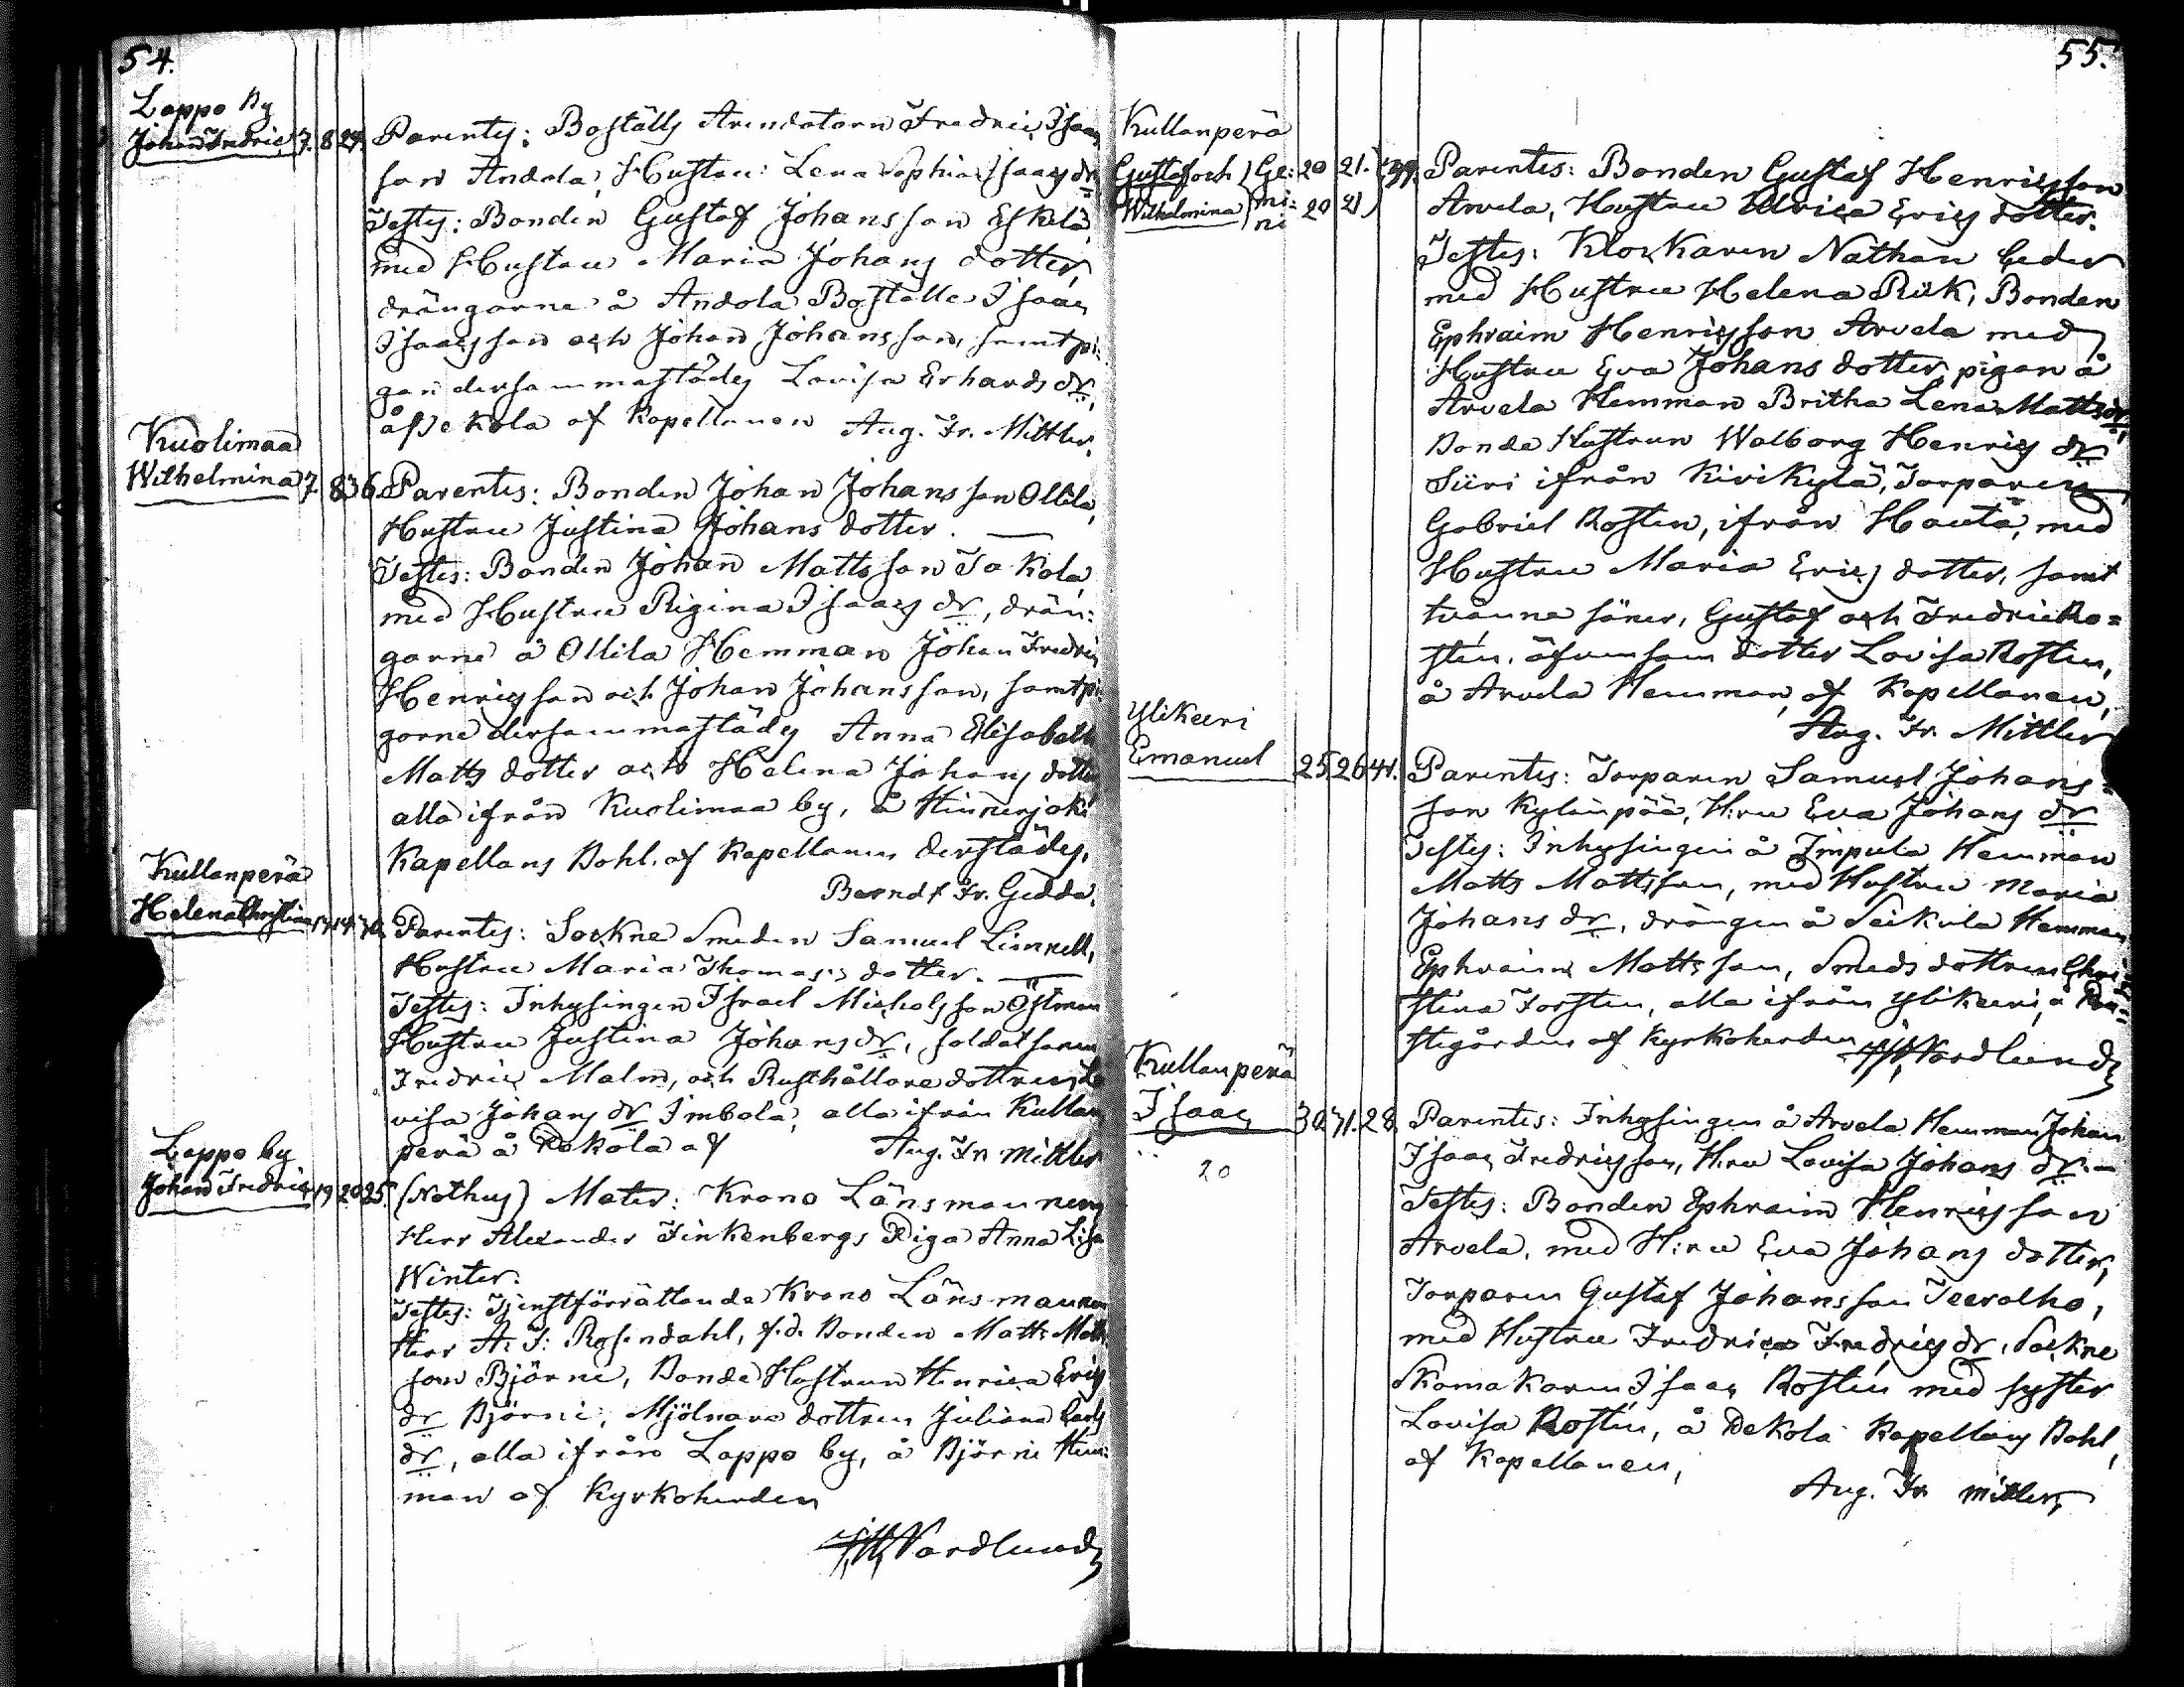 54.
Lappo By
Johan Fredric 7. 8 27. Parentes: Boställs Arendatorn Fredric Isaacs
son Andola, Hustru: Lena Sophia Isaacs dr
Testes: Bonden Gustaf Johansson Eskola,
med Hustru Maria Johans dotter,
drängarne å Andola Boställe Isaac
Isaacsson och Johan Johansson, samt pi:
gan dersammastädes Lovisa Erhards dr,
å Pekola af Kapellanen Aug. Fr. Mittler.
Kuolimaa
Wilhelmina 7. 8 36. Parentes: Bonden Johan Johansson Ollila,
Hustru Justina Johans dotter.
Testes: Bonden Johan Mattsson Takola
med Hustru Regina Isaacs dr, drän:
garne å Ollila Hemman Johan Fredric
Henricsson och Johan Johansson, samt pi:
gorne dersammastädes Anna Elisabeth
Matts dotter och Helena Johans dotter
alla ifrån Kuolimaa by, å Hinnerjoki
Kapellans Bohl. af Kapellanen derstädes.
Berndt Fr. Gedda.
Kullanperä
Helena Christina 13. 14. 30. Parentes: Sockne Smeden Samuel Linnell,
Hustru Maria Thomas dotter.
Testes: Inhysingen Israel Michelsson Östman
Hustru Justina Johans dr, soldat sonen
Fredric Malm, och Rusthållare dottren Lo
visa Johans dr Imbola, alla ifrån Kullan
perä å Pekola af Aug. Fr. Mittler
Lappo by
Johan Fredric 19. 20. 25. (Nothus) Mater: Krono Länsmannens
Herr Alexander Finkenbergs Piga Anna Lisa
Winter.
Testes: Tjenstförrättande Krono Länsmannen
Herr A. F. Rosendahl, f.d. Bonden Matts Matts
son Björni, Bonde Hustrun Henrica Erics
dr Björni, Mjölnare dottren Juliana Carls
dr, alla ifrån Lappo by, å Björni Hem:
man af Kyrkoherden
Nordlund
55.
Kullanperä
Gustaf och } Ge: 20 21. 39. Parentes: Bonden Gustaf Henricsson
Wilhelmina mi: ni 20 21 Arvela, Hustru Ulrica Erics dotter.
Testes: Klockaren Nathan Ceder
med Hustru Helena Riik, Bonden
Ephraim Henricsson Arvela med
Hustru Eva Johans dotter, pigan å
Arvela Hemman Britha Lena Matts dr,
Bonde Hustrun Walborg Henrics dr
Siiri ifrån Kivikylä, Torparen
Gabriel Rosten, ifrån Hauta, med
Hustru Maria Erics dotter, samt
tvänne söner, Gustaf och Fredric Ro=
sten, äfvensom dotter Lovisa Rosten,
å Arvela Hemman, af Kapellanen,
Aug. Fr. Mittler
Ylikeeri
Emanuel 25 26 41. Parentes: Torparen Samuel Johans=
son Kylänpää, H:ru Eva Johans dr
Testes: Inhysingen å Impula Hemman
Matts Mattsson, med Hustru Maria
Johans dr, drängen å Seikula Hemman
Ephraim Mattsson, Smeds dottren Chri=
stina Torsten, alla ifrån Ylikeeri, å Pre=
stgården af Kyrkoherden Nordlund
Kullanperä
Isaac 30. 31. 28. Parentes: Inhysingen å Arvela Hemman Johan
20
Isaac Fredricsson, H:ru Lovisa Johans dr.
Testes: Bonden Ephraim Henricsson
Arvela, med H:ru Eva Johans dotter,
Torparen Gustaf Johansson Teevalho,
med Hustru Fredrica Fredrics dr, Sockne
Skomakaren Isaac Rosten med syster
Lovisa Rosten, å Pekola Kapellans Bohl,
af Kapellanen,
Aug. Fr. Mittler,